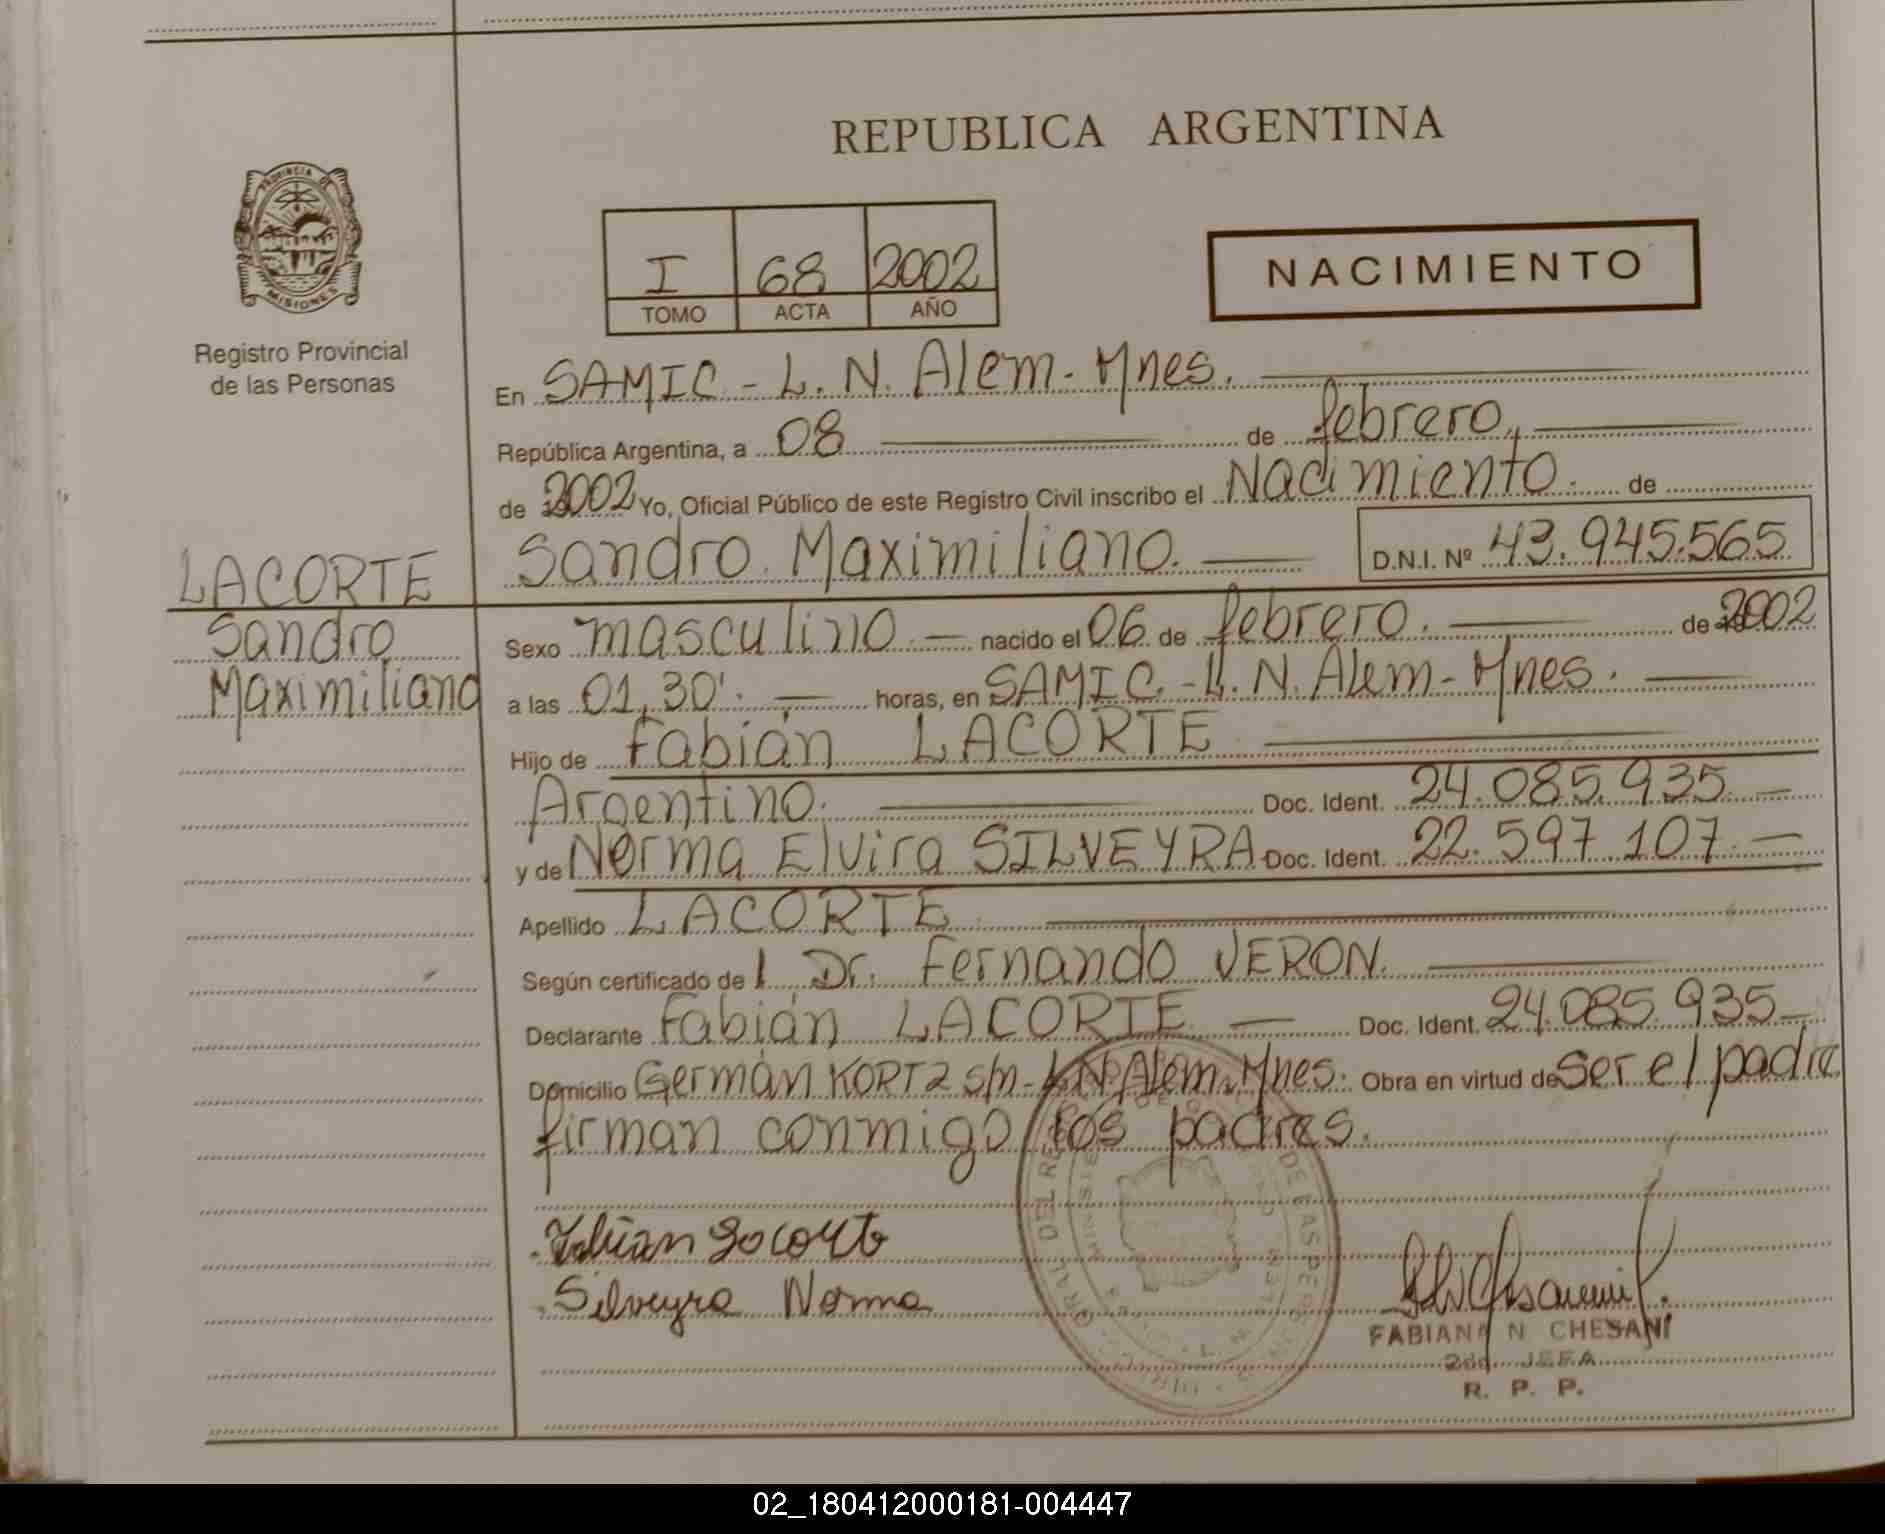 REPUBLICA ARGENTINA
PROVINCIA DE
MISIONES
Registro Provincial
de las Personas
I 68 2002
TOMO ACTA AÑO
NACIMIENTO
En SAMIC - L. N. Alem - Mnes.
República Argentina, a 08 de febrero,
de 2002 Yo, Oficial Público de este Registro Civil inscribo el Nacimiento. de
Sandro Maximiliano. D.N.I. Nº 43.945.565
LACORTE
Sandro
Maximiliano
Sexo masculino. nacido el 06 de febrero. de 2002
a las 01,30'. horas, en SAMIC. - L. N. Alem - Mnes.
Hijo de Fabián LACORTE
Argentino. Doc. Ident. 24.085.935
y de Norma Elvira SILVEYRA Doc. Ident. 22.597.107
Apellido LACORTE
Según certificado de l Dr. Fernando VERON.
Declarante Fabián LACORTE Doc. Ident. 24.085.935
Domicilio Germán KORTZ s/n - L.N. Alem. Mnes. Obra en virtud de ser el padre
firman conmigo los padres.
Fabian Lacorte
Silveyra Norma
FABIANA N CHESANI
2da. JEFA
R. P. P.
02_180412000181-004447